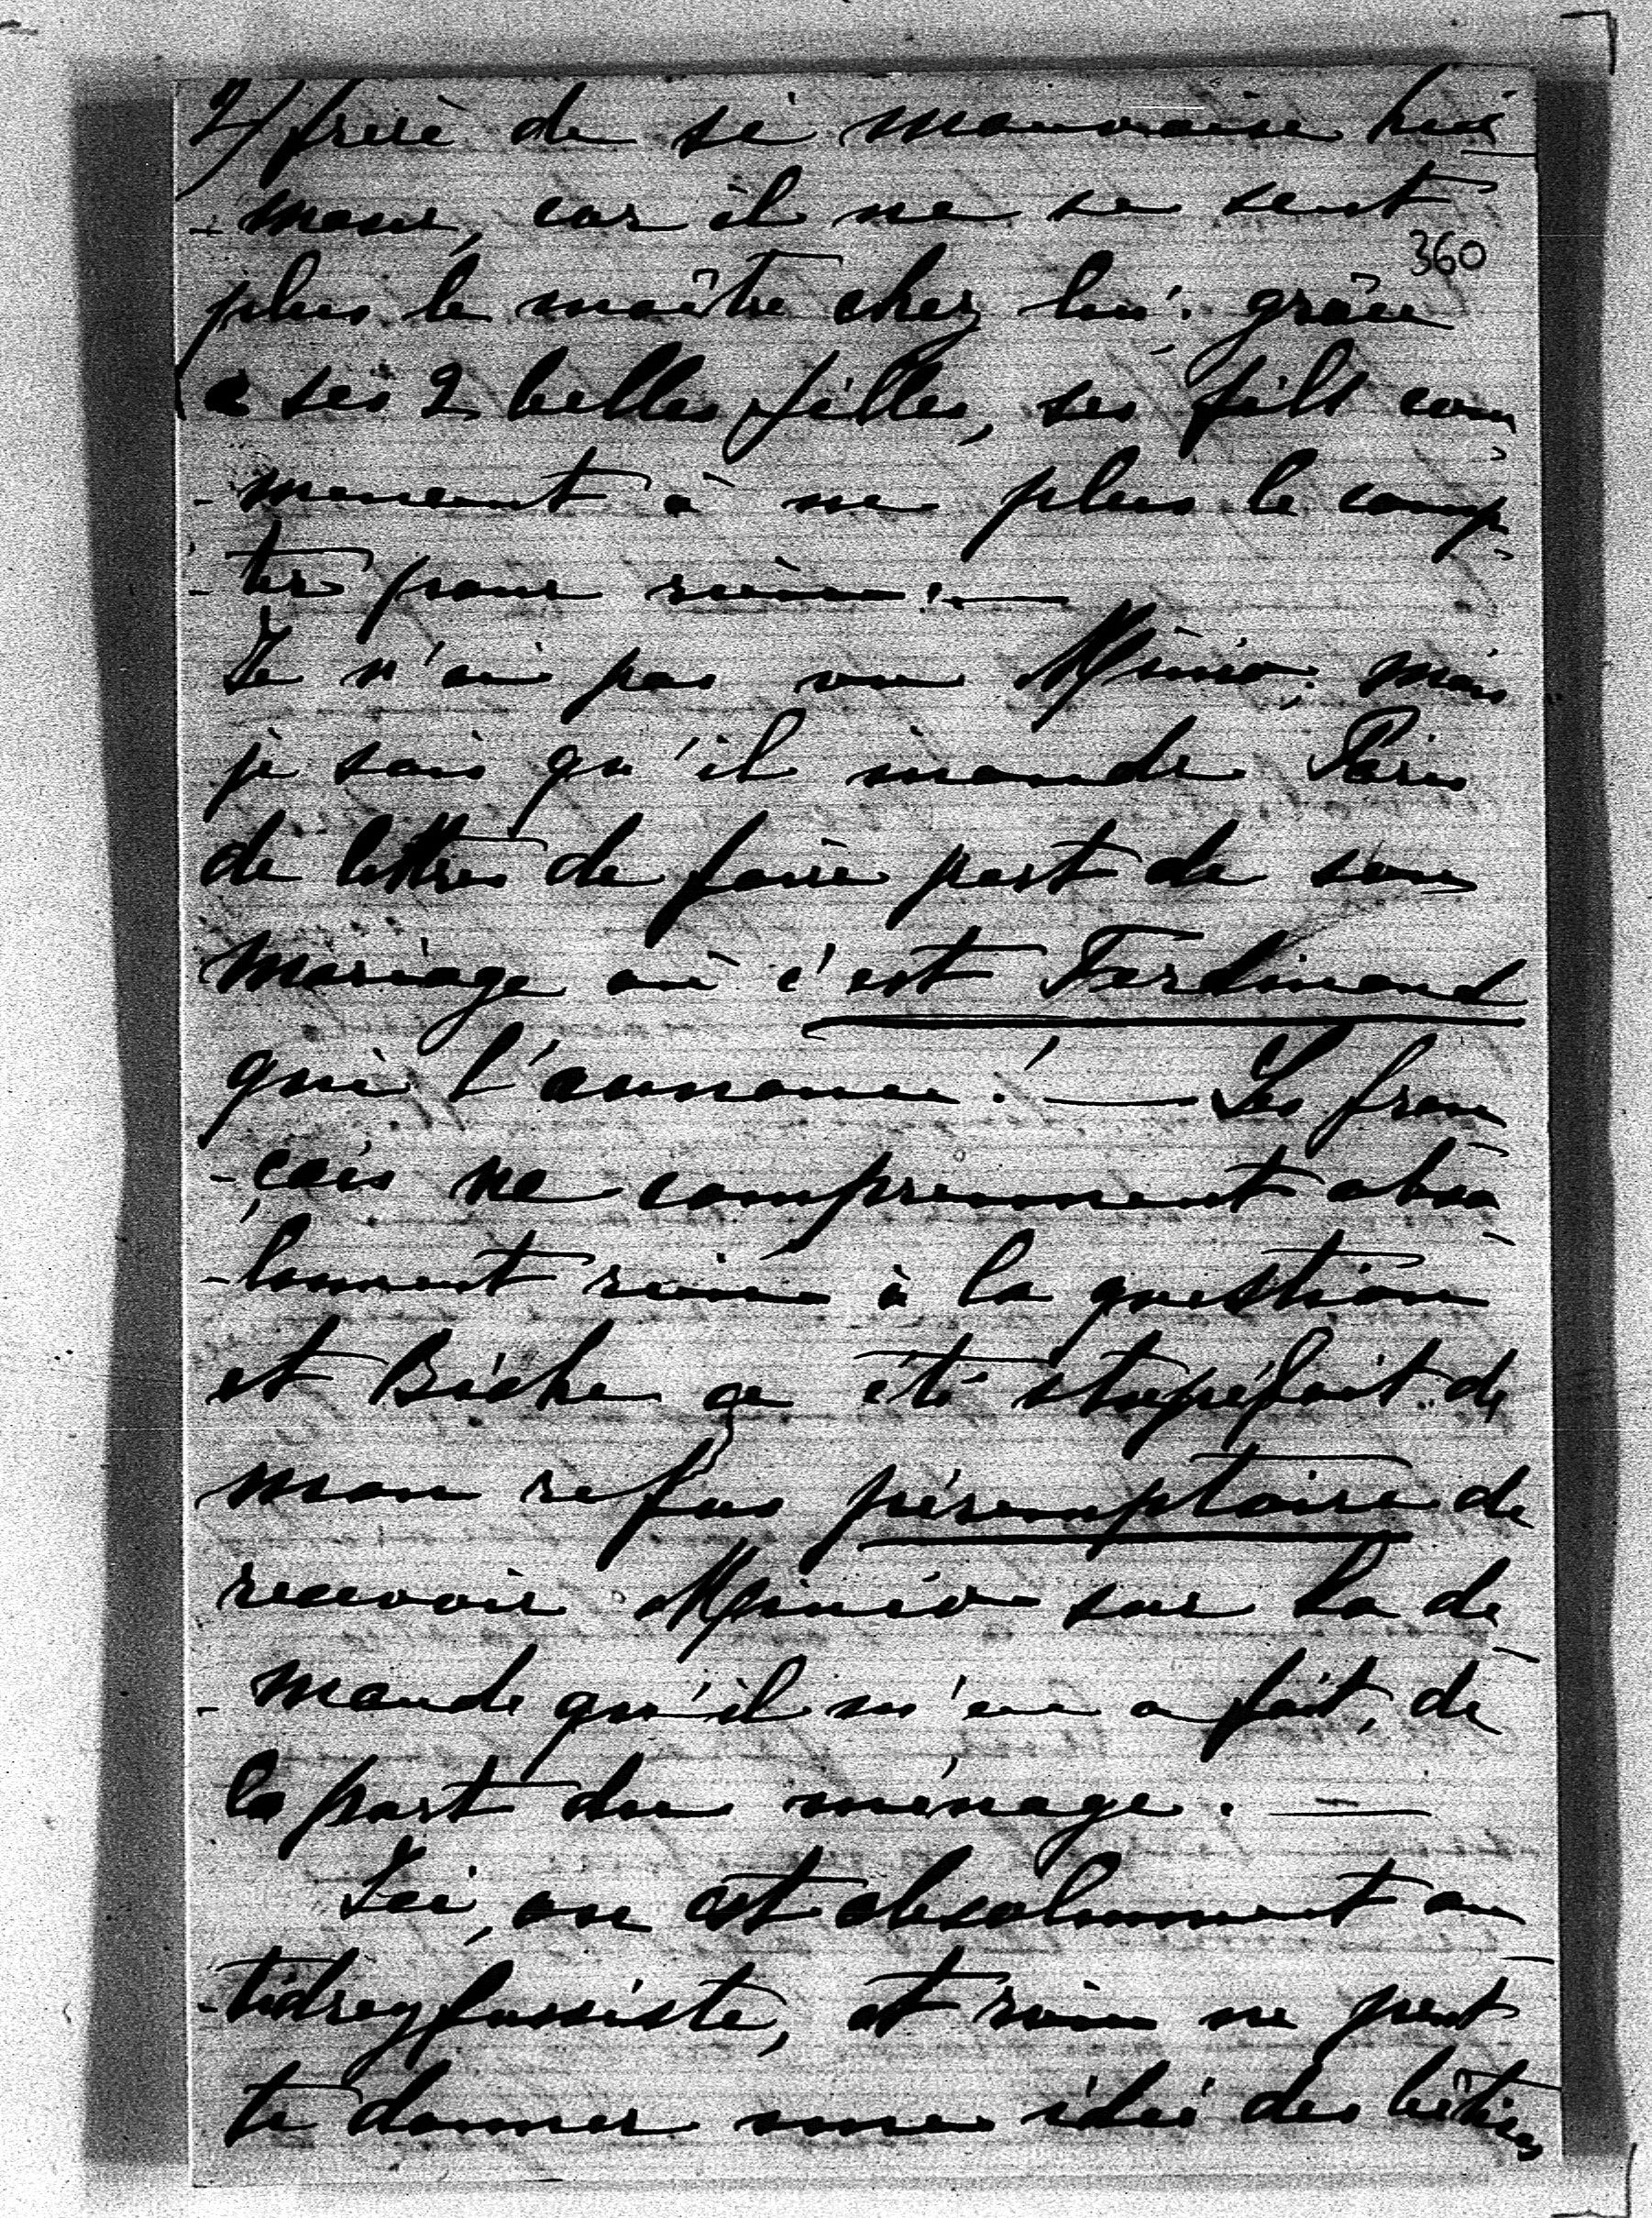 2/ frère de si mauvaise hu-
-meur, car il ne se sent
360
plus le maître chez lui: grâce
à ses 2 belles filles, ses fils com-
-mencent à ne plus le comp-
-ter pour rien. —
Je n'ai pas vu Minio, mais
je sais qu'il inonde Paris
de lettres de faire part de son
mariage où c'est Ferdinand
qui l'annonce! — Les fran
-çais ne comprennent abso-
-lument rien à la question
et Biche a été stupéfait de
mon refus péremptoire de
recevoir Minio sur la de-
-mande qu'il m'en a fait, de
la part du ménage. —
Ici, on est absolument an-
-tidreyfussiste, et rien ne peut
te donner une idée des bêtises